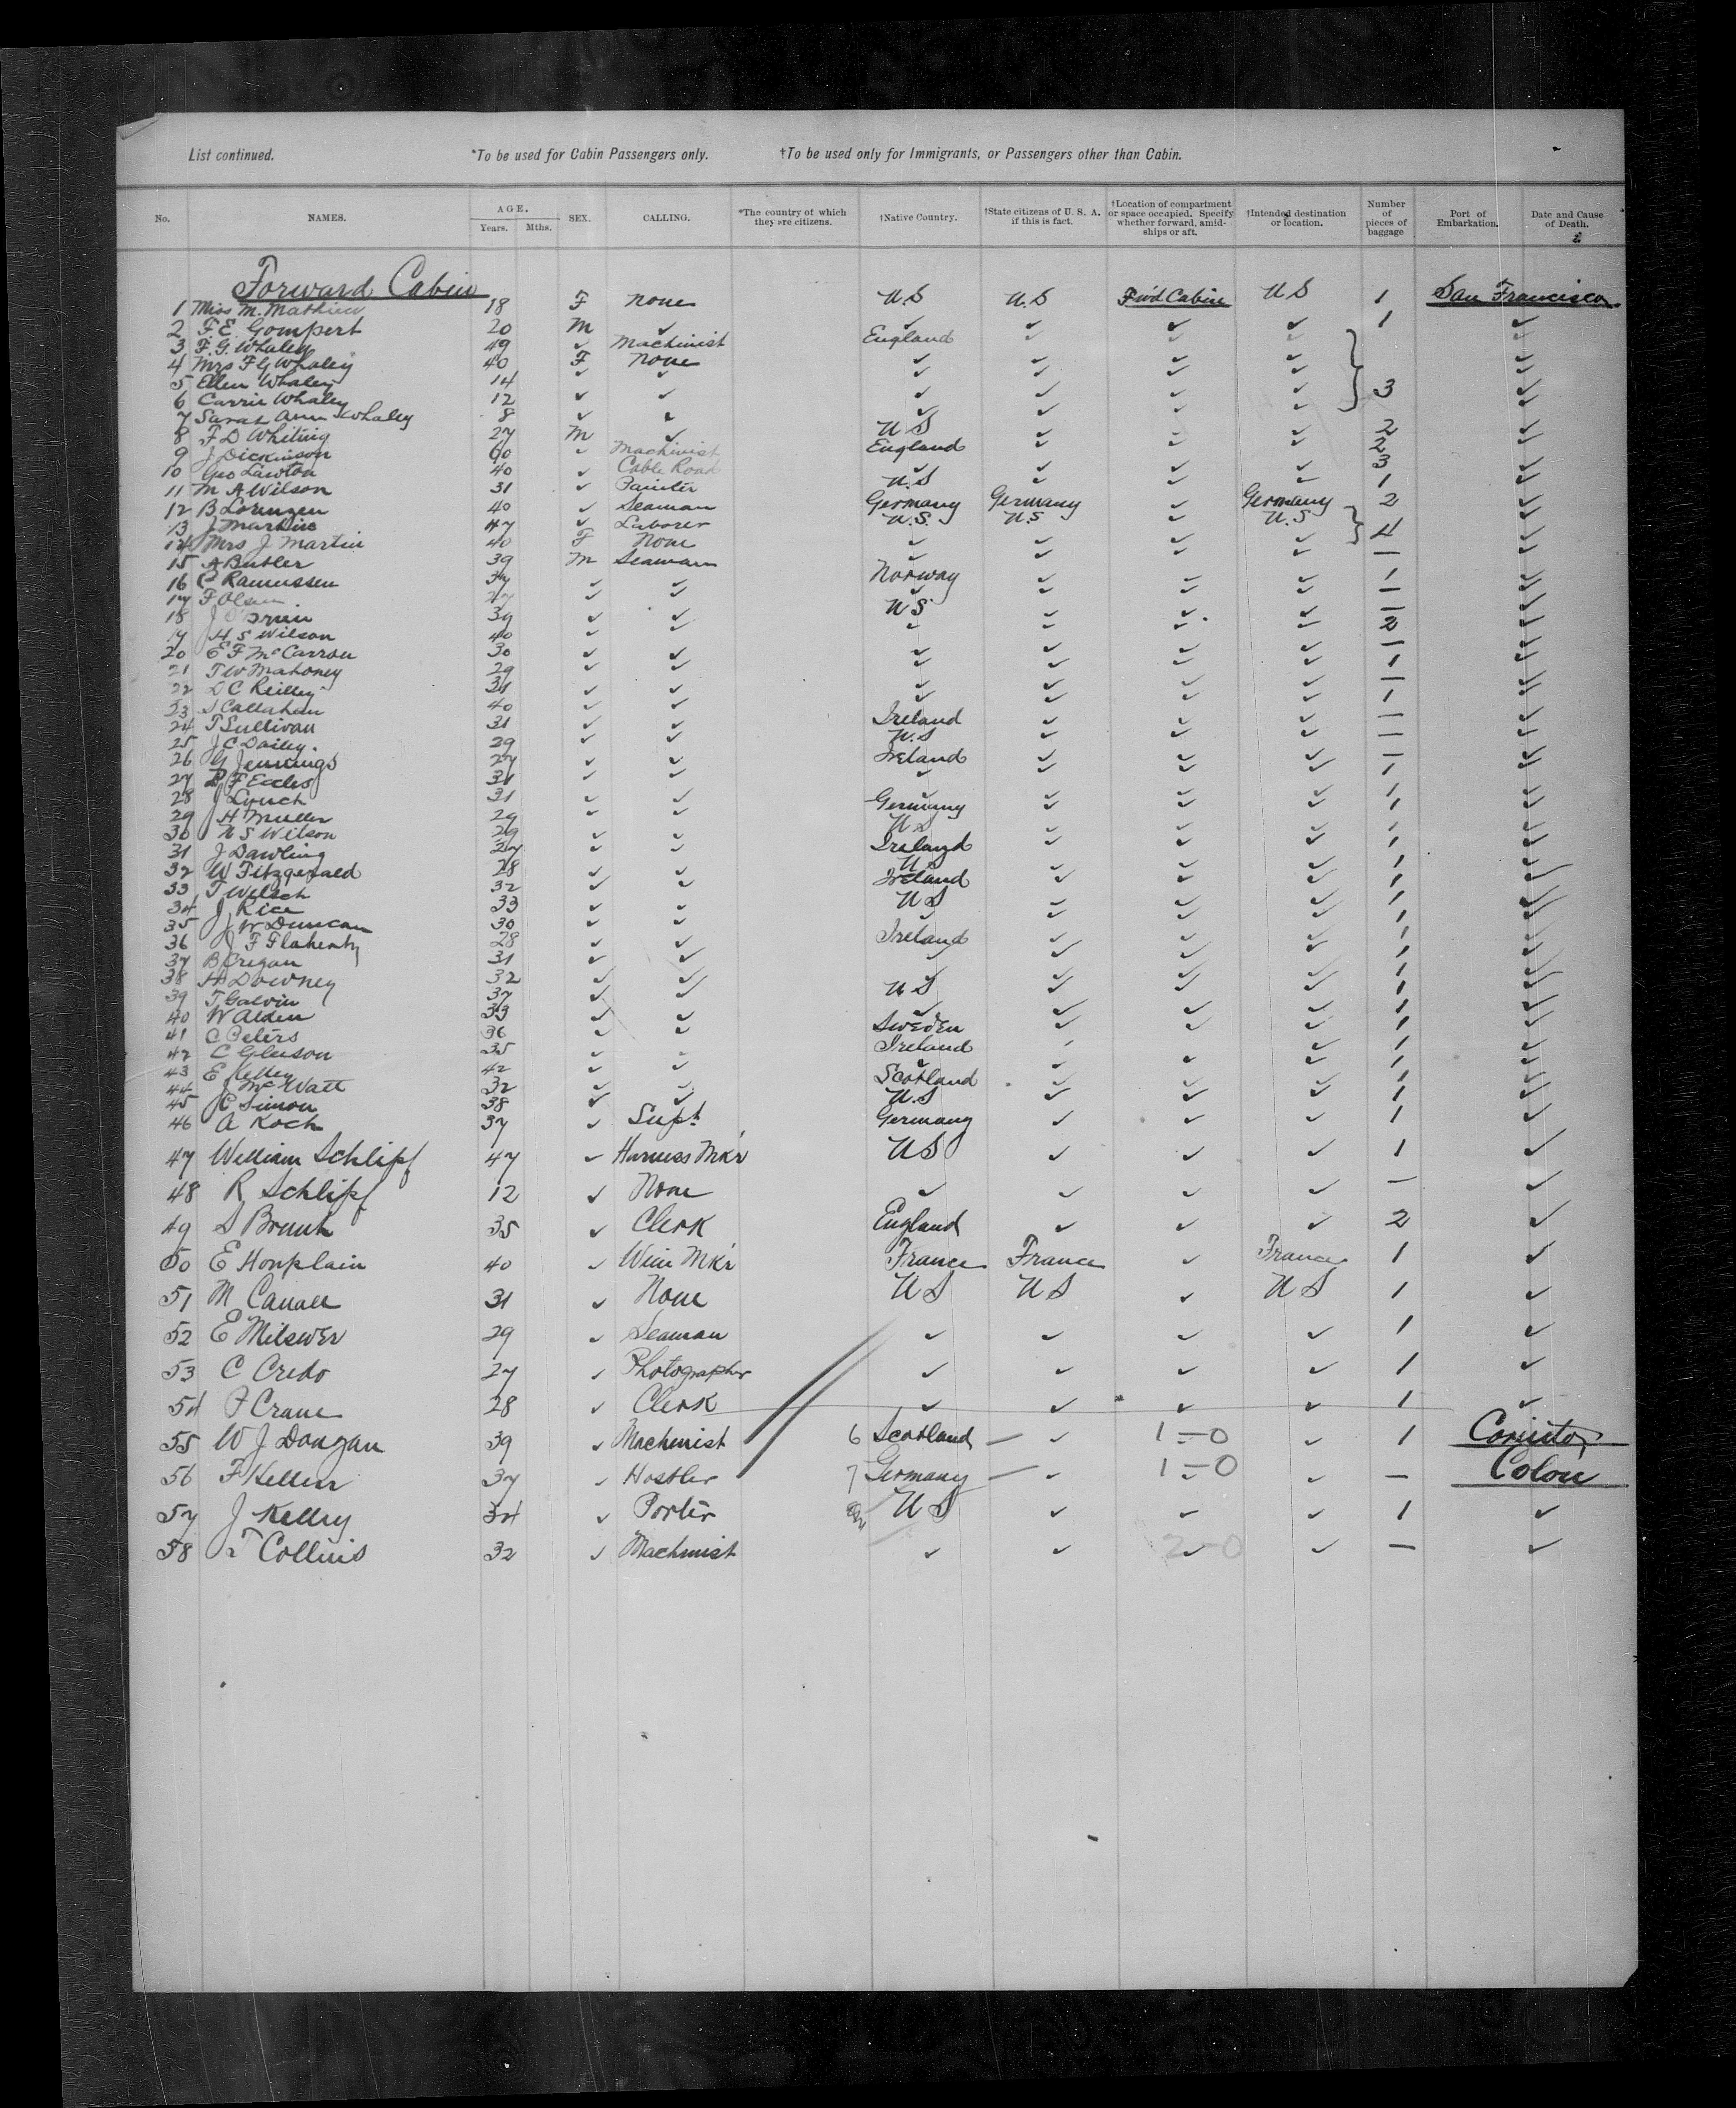 List continued. *To be used for Cabin Passengers only. †To be used only for Immigrants, or Passengers other than Cabin.
No. NAMES. AGE. Years. Mths. SEX. CALLING. *The country of which they are citizens. †Native Country. †State citizens of U. S. A. if this is fact. †Location of compartment or space occupied. Specify whether forward, amidships or aft. †Intended destination or location. Number of pieces of baggage Port of Embarkation. Date and Cause of Death.
Forward Cabin
1 Miss M. Mathieu 18 F none U.S U.S Fw'd Cabin U S 1 San Francisco
2 F E Gompert 20 M ✓ ✓ ✓ ✓ ✓ 1 ✓
3 F. G. Whaley 49 ✓ Machinist England ✓ ✓ ✓
4 Mrs F G Whaley 40 F none ✓ ✓ ✓ ✓ ✓
5 Ellen Whaley 14 ✓ ✓ ✓ ✓ ✓ ✓ ✓
6 Carrie Whaley 12 ✓ ✓ ✓ ✓ ✓ ✓ 3 ✓
7 Sarah Ann Whaley 8 ✓ ✓ ✓ ✓ ✓ ✓ ✓
8 F D Whiting 27 M ✓ U S ✓ ✓ ✓ 2 ✓
9 J Dickinson 60 ✓ Machinist England ✓ ✓ ✓ 2 ✓
10 Geo Lawton 40 ✓ Cable Road ✓ ✓ ✓ 3 ✓
11 M A Wilson 31 ✓ Painter U.S ✓ ✓ ✓ 1 ✓
12 B Lorenzen 40 ✓ Seaman Germany Germany ✓ Germany 2 ✓
13 J Martin 47 ✓ Laborer U.S. U.S ✓ U.S ✓
14 Mrs J Martin 40 F None ✓ ✓ ✓ ✓ 4 ✓
15 A Butler 39 M Seaman ✓ ✓ ✓ ✓ — ✓
16 C Ramussen 37 ✓ ✓ Norway ✓ ✓ ✓ 1 ✓
17 F Olsen 27 ✓ ✓ ✓ ✓ ✓ ✓ — ✓
18 J O'Brien 39 ✓ ✓ U S ✓ ✓ ✓ — ✓
19 H S Wilson 40 ✓ ✓ ✓ ✓ ✓ ✓ 2 ✓
20 E F McCarron 30 ✓ ✓ ✓ ✓ ✓ ✓ — ✓
21 T W Mahoney 29 ✓ ✓ ✓ ✓ ✓ ✓ 1 ✓
22 D C Reilley 31 ✓ ✓ ✓ ✓ ✓ ✓ — ✓
23 S Callahan 40 ✓ ✓ ✓ ✓ ✓ ✓ 1 ✓
24 T Sullivan 31 ✓ ✓ Ireland ✓ ✓ ✓ — ✓
25 J C Dailey. 29 ✓ ✓ U.S ✓ ✓ ✓ — ✓
26 G Jennings 27 ✓ ✓ Ireland ✓ ✓ ✓ — ✓
27 F Eccles 31 ✓ ✓ ✓ ✓ ✓ ✓ 1 ✓
28 J Lynch 31 ✓ ✓ ✓ ✓ ✓ ✓ 1 ✓
29 H Muller 29 ✓ ✓ Germany ✓ ✓ ✓ 1 ✓
30 N S Wilson 29 ✓ ✓ U S ✓ ✓ ✓ 1 ✓
31 J Dawling 27 ✓ ✓ Ireland ✓ ✓ ✓ 1 ✓
32 W Fitzgerald 28 ✓ ✓ U S ✓ ✓ ✓ 1 ✓
33 T Welsch 32 ✓ ✓ Ireland ✓ ✓ ✓ 1 ✓
34 J Rice 33 ✓ ✓ U S ✓ ✓ ✓ 1 ✓
35 J W Duncan 30 ✓ ✓ ✓ ✓ ✓ ✓ 1 ✓
36 J F Flaherty 28 ✓ ✓ Ireland ✓ ✓ ✓ 1 ✓
37 B Cregan 31 ✓ ✓ ✓ ✓ ✓ ✓ 1 ✓
38 H Downey 32 ✓ ✓ ✓ ✓ ✓ ✓ 1 ✓
39 T Galvin 37 ✓ ✓ U S ✓ ✓ ✓ 1 ✓
40 W Alden 33 ✓ ✓ ✓ ✓ ✓ ✓ 1 ✓
41 C Peters 36 ✓ ✓ Sweden ✓ ✓ ✓ 1 ✓
42 C Gleason 35 ✓ ✓ Ireland ✓ ✓ ✓ 1 ✓
43 E Kelley 42 ✓ ✓ ✓ ✓ ✓ ✓ 1 ✓
44 J McWatt 32 ✓ ✓ Scotland ✓ ✓ ✓ 1 ✓
45 E Simon 38 ✓ ✓ U.S ✓ ✓ ✓ 1 ✓
46 A Koch 37 ✓ Supt Germany ✓ ✓ ✓ 1 ✓
47 William Schlipf 47 ✓ Harness Mk'r U S ✓ ✓ ✓ 1 ✓
48 R Schlipf 12 ✓ None ✓ ✓ ✓ ✓ — ✓
49 S 35 ✓ Clerk England ✓ ✓ ✓ 2 ✓
50 E Honplain 40 ✓ Wine Mk'r France France ✓ France 1 ✓
51 M 31 ✓ None U S U S ✓ U S 1 ✓
52 E Milswer 29 ✓ Seaman ✓ ✓ ✓ ✓ 1 ✓
53 C Credo 27 ✓ Photographer ✓ ✓ ✓ ✓ 1 ✓
54 F Crane 28 ✓ Clerk ✓ ✓ ✓ ✓ 1 ✓
55 W J Dongan 39 ✓ Machinist 6 Scotland — ✓ 1–0 ✓ 1 Corinto
56 F Keller 37 ✓ Hostler 7 Germany — ✓ 1–0 ✓ — Colon
57 J Kelley 34 ✓ Porter U S ✓ ✓ ✓ 1 ✓
58 T Collins 32 ✓ Machinist ✓ ✓ 2–0 ✓ — ✓